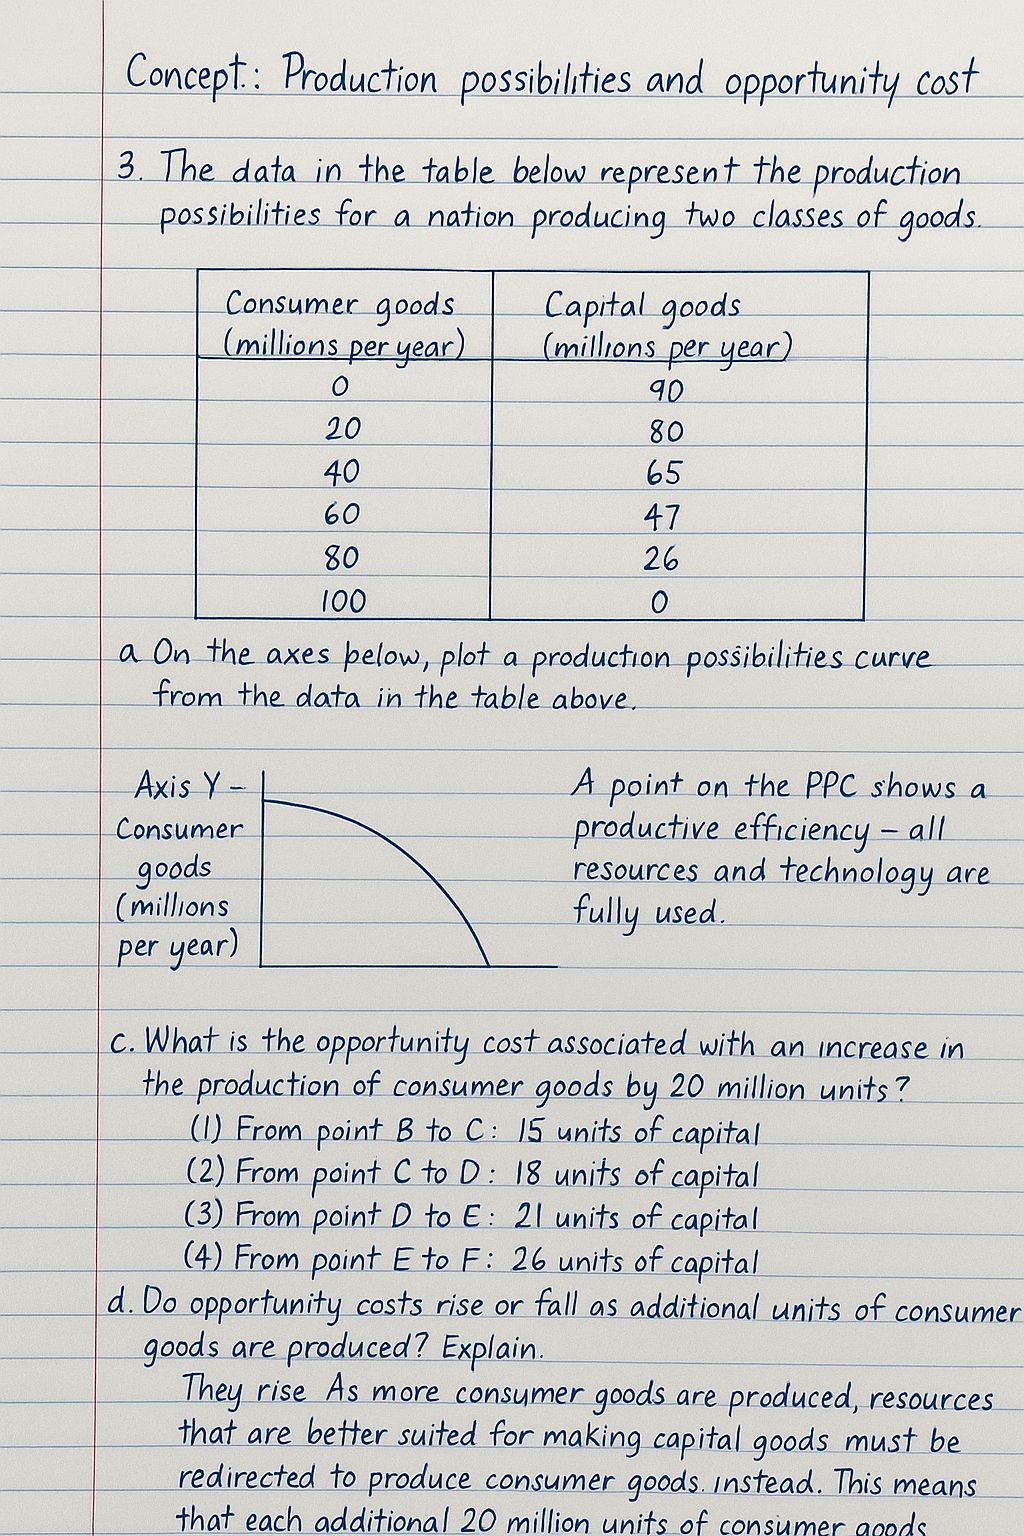 Concept: Production possibilities and opportunity cost
3. The data in the table below represent the production
possibilities for a nation producing two classes of goods.
Consumer goods Capital goods
(millions per year) (millions per year)
0 90
20 80
40 65
60 47
80 26
100 0
a On the axes below, plot a production possibilities curve
from the data in the table above.
Axis Y –
Consumer
goods
(millions
per year)
A point on the PPC shows a
productive efficiency – all
resources and technology are
fully used.
c. What is the opportunity cost associated with an increase in
the production of consumer goods by 20 million units?
(1) From point B to C: 15 units of capital
(2) From point C to D: 18 units of capital
(3) From point D to E: 21 units of capital
(4) From point E to F: 26 units of capital
d. Do opportunity costs rise or fall as additional units of consumer
goods are produced? Explain.
They rise As more consumer goods are produced, resources
that are better suited for making capital goods must be
redirected to produce consumer goods. instead. This means
that each additional 20 million units of consumer goods